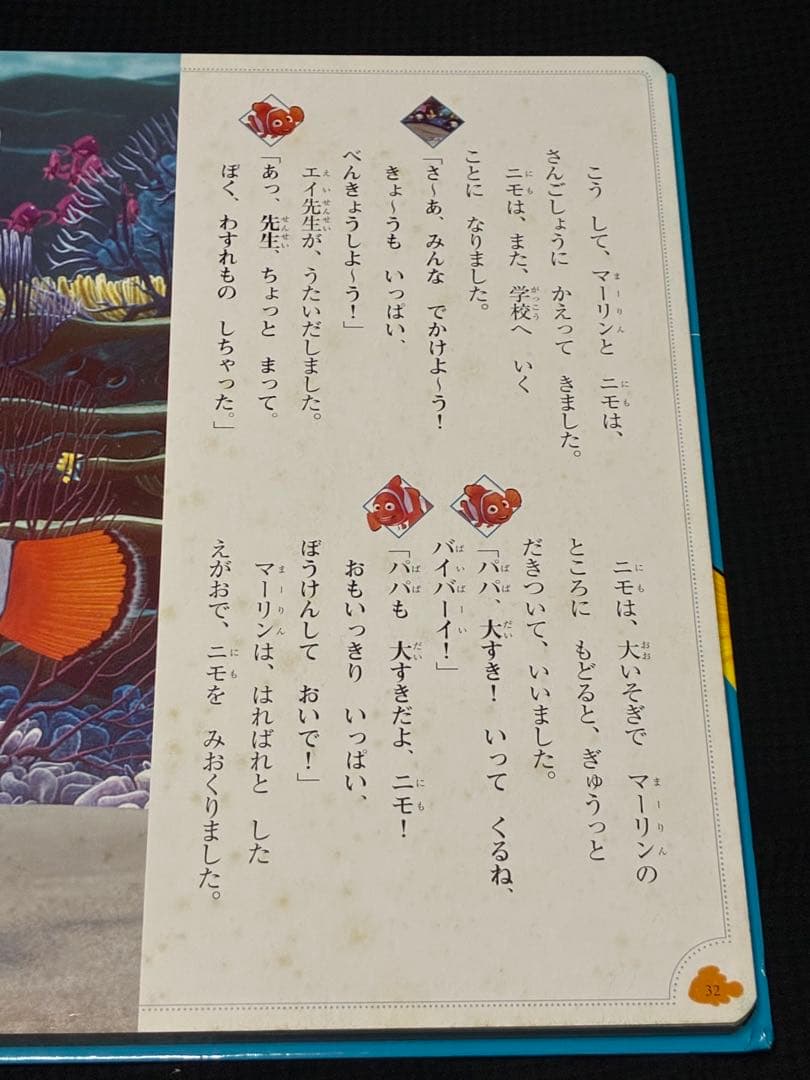 こう して、マーリンと ニモは、
さんごしょうに かえって きました。
ニモは、また、学校へ いく
ことに なりました。
「さ〜あ、みんな でかけよ〜う!
きょ〜うも いっぱい、
べんきょうしよ〜う!」
エイ先生が、うたいだしました。
「あっ、先生、ちょっと まって。
ぼく、わすれもの しちゃった。」
ニモは、大いそぎで マーリンの
ところに もどると、ぎゅうっと
だきついて、いいました。
「パパ、大すき! いって くるね、
バイバーイ!」
「パパも 大すきだよ、ニモ!
おもいっきり いっぱい、
ぼうけんして おいで!」
マーリンは、はればれと した
えがおで、ニモを みおくりました。
32